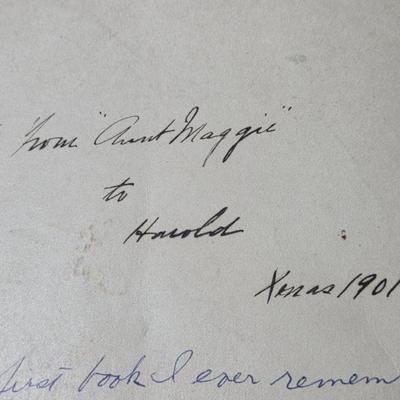 From "Aunt Maggie"
to
Harold
Xmas 1901
first book I ever remem